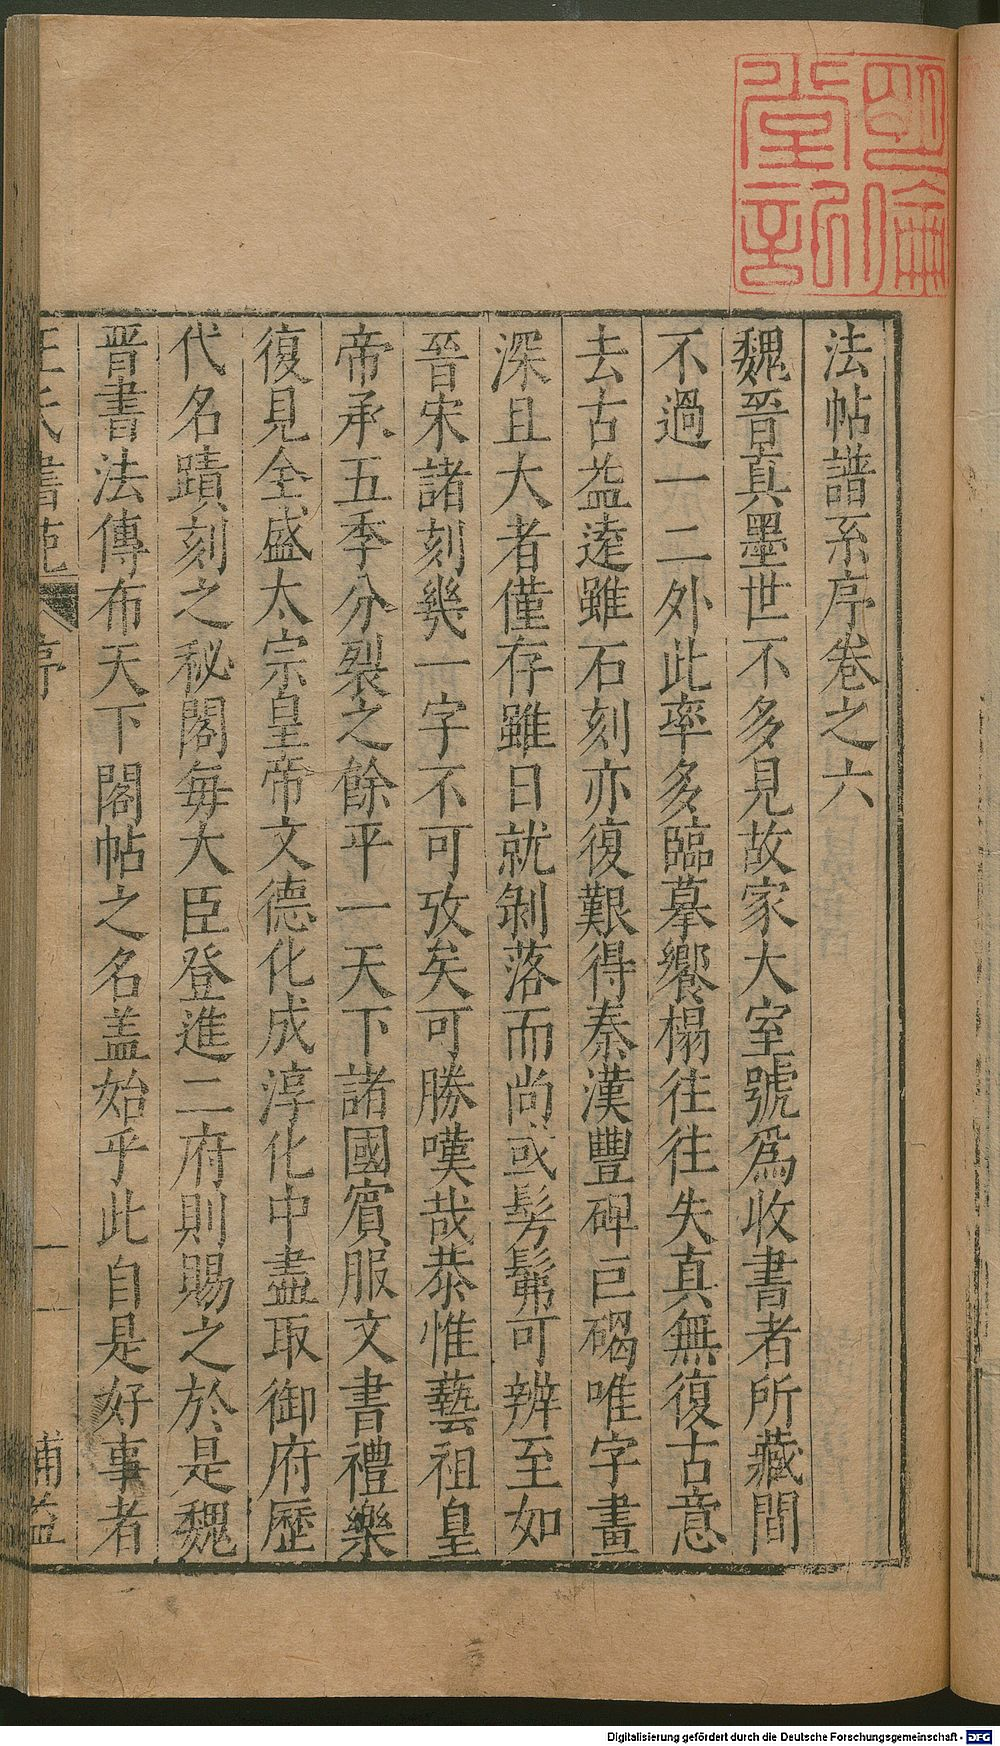 明倫堂記
法帖譜系序卷之六
魏晉真墨世不多見故家大室號爲收書者所藏間
不過一二外此率多臨摹響榻往往失真無復古意
去古益遠雖石刻亦復艱得秦漢豐碑巨碣唯字畫
深且大者僅存雖日就剝落而尚或髣髴可辨至如
晉宋諸刻幾一字不可攷矣可勝嘆哉恭惟藝祖皇
帝承五季分裂之餘平一天下諸國賓服文書禮樂
復見全盛太宗皇帝文德化成淳化中盡取御府歷
代名蹟刻之秘閣每大臣登進二府則賜之於是魏
晉書法傳布天下閣帖之名盖始乎此自是好事者
王氏書苑 序 一 補益
Digitalisierung gefördert durch die Deutsche Forschungsgemeinschaft - DFG